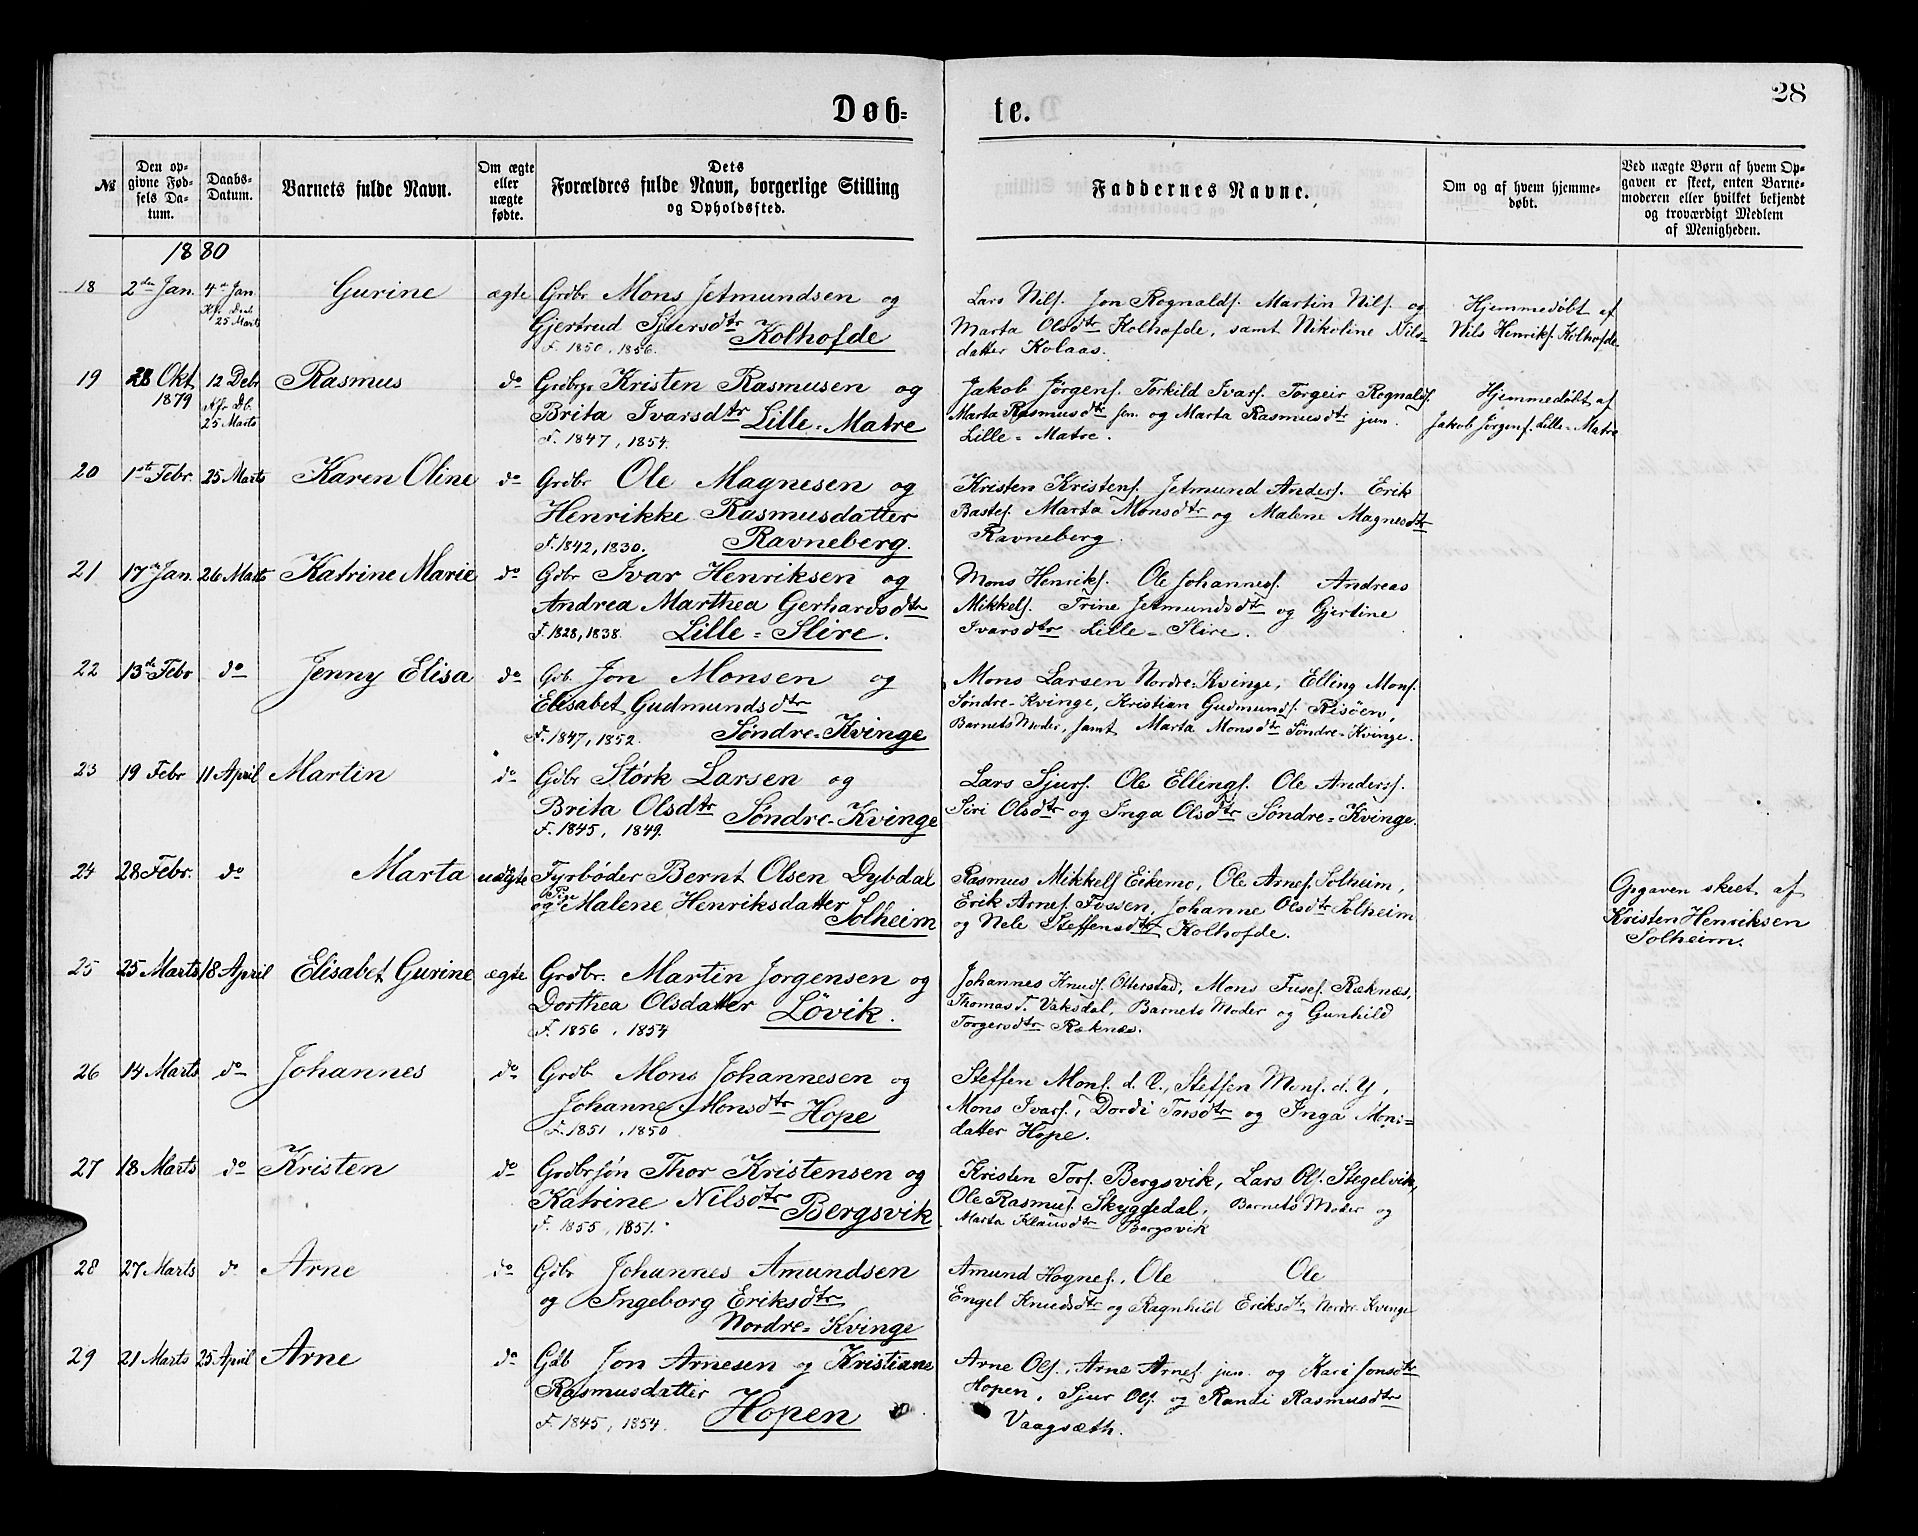 28
Døb-
te.
№
Den op-
givne Fød-
sels Da-
tum.
Daabs-
Datum.
Barnets fulde Navn.
Om ægte
eller
uægte
fødte.
Dets
Forældres fulde Navn, borgerlige Stilling
og Opholdssted.
Faddernes Navne.
Om og af hvem hjemme-
døbt.
Ved uægte Børn af hvem Op-
gaven er skeet, enten Barne-
moderen eller hvilket bekjendt
og troværdigt Medlem
af Menigheden.
1880
18 2den Jan. 4de Jan. Gurine ægte Grdbr. Mons Jetmundsen og
25 Marts
Gjertrud Sjursdtr Kolhofde
F. 1850, 1856.
Lars Nilss. Jon Rognalds. Martin Nils. og
Marta Olsdtr Kolhofde, samt Nikoline Nils-
datter Kolaas.
Hjemmedøbt af
Nils Henriks. Kolhofde
19 28 Okt 1879 12 Debr. Rasmus do Grdbr. Kristen Rasmusen og
25 Marts
Brita Ivarsdtr Lille-Matre
F. 1847, 1854.
Jakob Jørgens. Torkild Ivars. Torgeir Rognalds.
Marta Rasmusdtr sen. og Marta Rasmusdtr jun.
Lille-Matre.
Hjemmedøbt af
Jakob Jørgens. Lille-Matre
20 1ste Febr. 25 Marts Karen Oline do Grdbr Ole Magnesen og
Henrikke Rasmusdatter
F. 1842, 1830. Ravneberg.
Kristen Kristens. Jetmund Anders. Erik
Bastes. Marta Monsdtr og Malene Magnesdtr
Ravneberg.
21 17de Jan. 26 Marts Katrine Marie do Gdbr Ivar Henriksen og
Andrea Marthea Gerhardsdtr
F. 1828, 1838. Lille-Slire.
Mons Henriks. Ole Johanness. Andreas
Mikkels. Trine Jetmundsdtr og Gjertine
Ivarsdtr Lille-Slire.
22 13de Febr do Jenny Elisa do Gdb. Jon Monsen og
Elisabet Gudmundsdtr
F. 1847, 1852. Søndre-Kvinge
Mons Larsen Nordre-Kvinge, Elling Mons.
Søndre-Kvinge, Kristian Gudmunds. Risöen,
Barnets Moder, samt Marta Monsdtr Søndre-Kvinge.
23 19 Febr 11 April Martin do Gdbr Störk Larsen og
Brita Olsdtr Søndre-Kvinge
F. 1845, 1849.
Lars Sjurs. Ole Ellings. Ole Anderss.
Siri Olsdtr og Inga Olsdtr Søndre-Kvinge.
24 28 Febr. do Marta uægte Fyrbøder Bernt Olsen Dybdal
og Pige Malene Henriksdatter
Solheim
Rasmus Mikkels Eikemo, Ole Arnes. Solheim,
Erik Arnes. Fossen, Johanne Olsdtr Solheim
og Nele Steffensdtr Kolhofde.
Opgaven skeet af
Kristen Henriksen
Solheim.
25 25 Marts 18 April Elisabet Gurine ægte Grdbr. Martin Jorgensen og
Dorthea Olsdatter Lövik.
F. 1856, 1854
Johannes Knuds. Otterstad, Mons Fuses. Ræknæs,
Thomas T. Vaksdal, Barnets Moder og Gunhild
Torgersdtr Ræknæs.
26 14 Marts do Johannes do Grdb. Mons Johannesen og
Johanne Monsdtr Hope
F. 1851, 1850.
Steffen Mons. d. Æ., Steffen Mons. d. Y,
Mons Ivars., Dordi Torsdtr og Inga Mons-
datter Hope.
27 18 Marts do Kristen do Grdbrsøn Thor Kristensen og
Katrine Nilsdtr Bergsvik
F. 1855, 1851.
Kristen Tors. Bergsvik, Lars Ols. Stegelvik,
Ole Rasmus. Skyggedal, Barnets Moder og
Marta Klausdtr Bergsvik
28 27 Marts do Arne do Gdbr Johannes Amundsen
og Ingeborg Eriksdtr
Nordre-Kvinge
Amund Hognes., Ole Ole
Engel Knudsdtr og Ragnhild Eriksdtr Nordre-Kvinge
29 21 Marts 25 April Arne do Gdb Jon Arnesen og Kristiane
Rasmusdatter
F. 1845, 1854. Hopen
Arne Ols., Arne Arnes. jun. og Kari Jonsdtr
Hopen, Sjur Ols. og Randi Rasmusdtr
Vaagsæth.